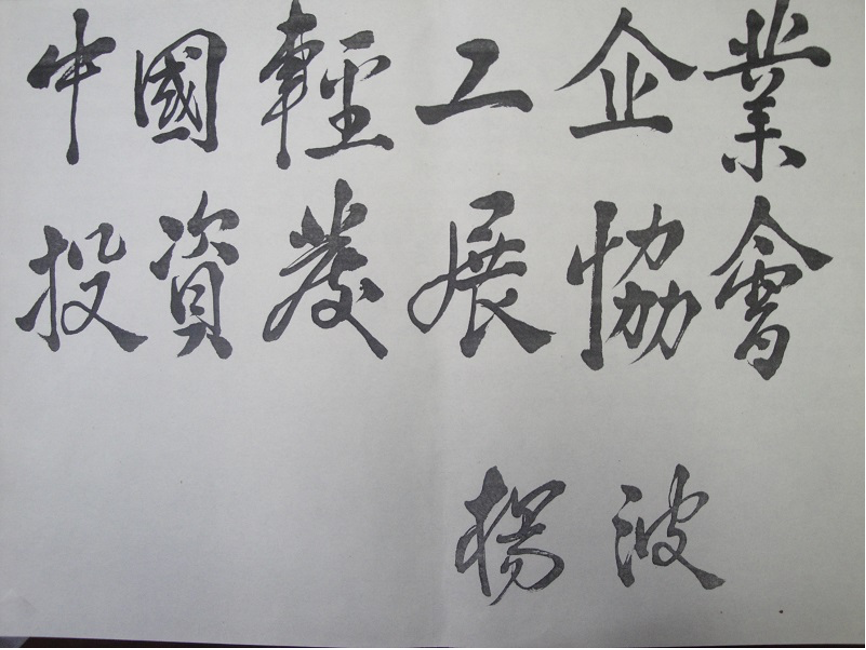 中國輕工企業
投資發展協會
楊波